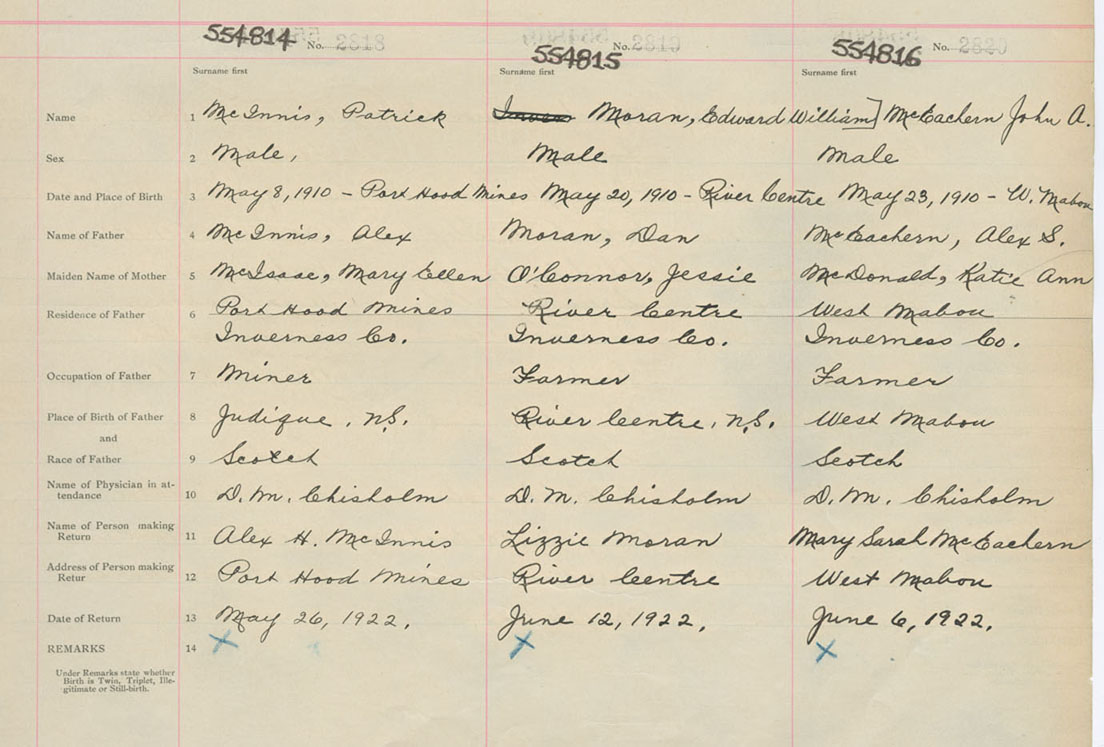 554814 No. 2818 554815 No. 2819 554816 No. 2820
Surname first Surname first Surname first
Name 1 McInnis, Patrick Moran, Edward William] McEachern John A.
Sex 2 Male, Male Male
Date and Place of Birth 3 May 8, 1910 - Port Hood Mines May 20, 1910 - River Centre May 23, 1910 - W. Mabou
Name of Father 4 McInnis, Alex Moran, Dan McEachern, Alex S.
Maiden Name of Mother 5 McIsaac, Mary Ellen O'Connor, Jessie McDonald, Katie Ann
Residence of Father 6 Port Hood Mines River Centre West Mabou
Inverness Co. Inverness Co. Inverness Co.
Occupation of Father 7 Miner Farmer Farmer
Place of Birth of Father 8 Judique, N.S. River Centre, N.S. West Mabou
and
Race of Father 9 Scotch Scotch Scotch
Name of Physician in at-
tendance 10 D. M. Chisholm D. M. Chisholm D. M. Chisholm
Name of Person making
Return 11 Alex H. McInnis Lizzie Moran Mary Sarah McEachern
Address of Person making
Retur 12 Port Hood Mines River Centre West Mabou
Date of Return 13 May 26, 1922. June 12, 1922. June 6, 1922.
REMARKS 14 X X X
Under Remarks state whether
Birth is Twin, Triplet, Ille-
gitimate or Still-birth.